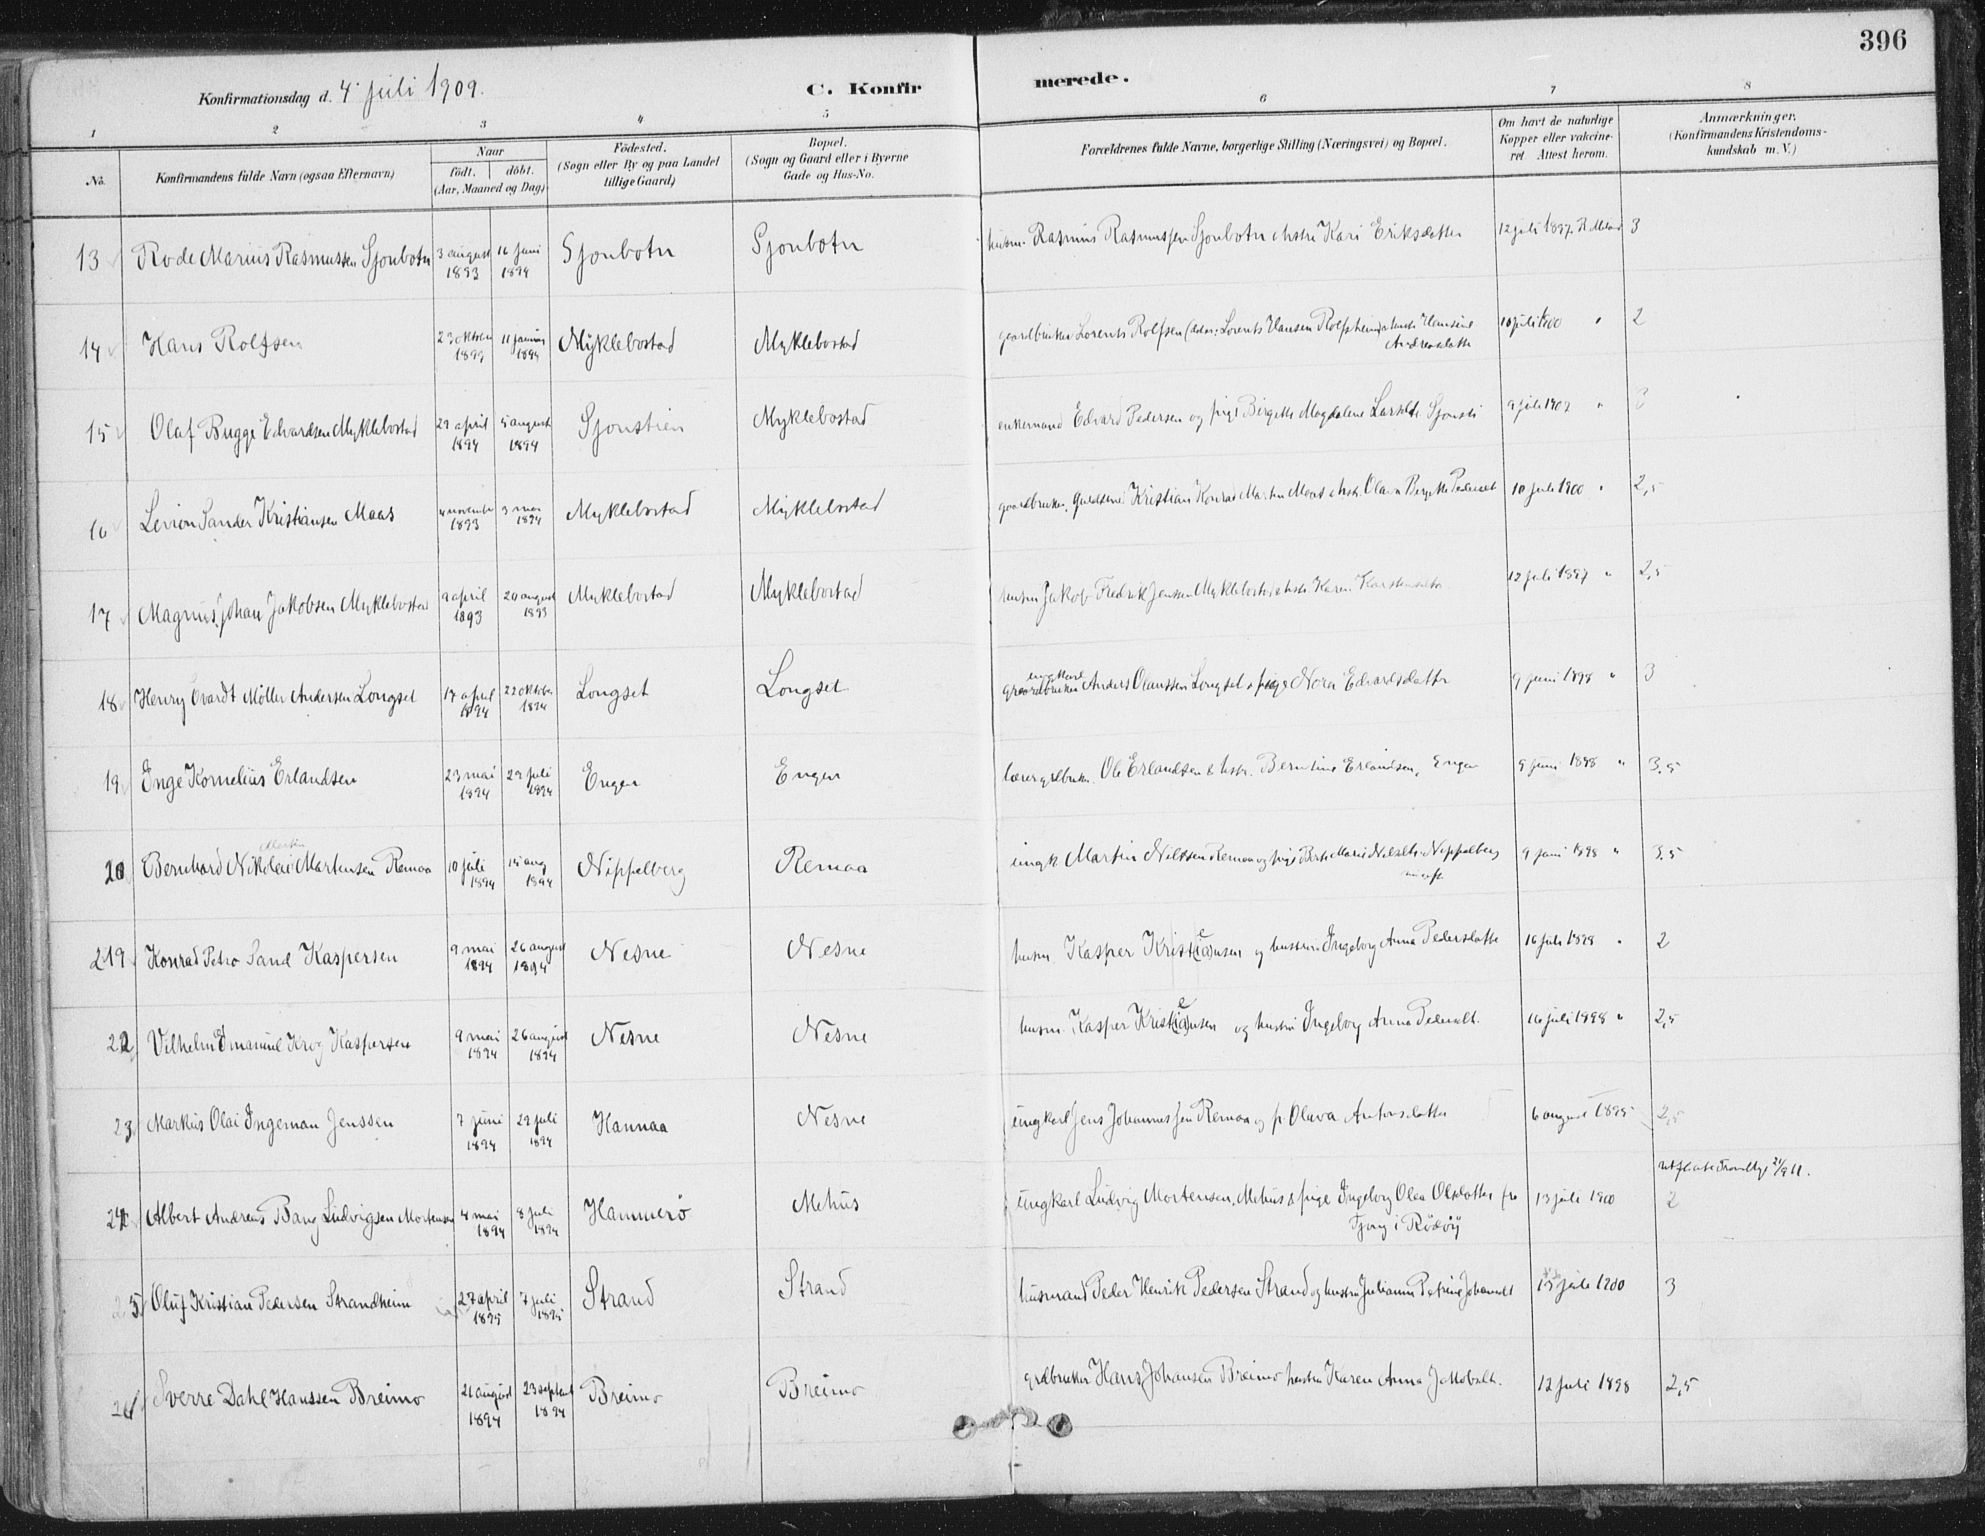 396
Konfirmationsdag d. 4 juli 1909.
C. Konfir
merede.
1 2 3 4 5 6 7 8
No.
Konfirmandens fulde Navn (ogsaa Efternavn)
Naar
födt. döbt.
(Aar, Maaned og Dag)
Födested.
(Sogn eller By og paa Landet
tillige Gaard)
Bopæl.
(Sogn og Gaard eller i Byerne
Gade og Hus-No.
Forældrenes fulde Navne, borgerlige Stilling (Næringsvei) og Bopæl.
Om havt de naturlige
Kopper eller vakcine-
ret. Attest herom.
Anmærkninger.
(Konfirmandens Kristendoms-
kundskab m. V.)
13 Rode Marius Rasmussen Sjonbotn 3 august 1893 Sjonbotn Sjonbotn husm. Rasmus Rasmussen Sjonbotn & hstr Kari Eriksdatter 12 juli 1897 3
14 Hans Rolfsen 23 oktober 11 januar 1894 Myklebostad Myklebostad gaardbruker Lorents Rolfsen (Lorents Hansen Rolfsheim) Hansine
Andreasdatter 10 juli 1900 " 2
15 Olaf Bugge Edvardsen Myklebostad 29 april 1894 5 august 1894 Sjonstien Myklebostad enkemand Edvard Pedersen og pige Birgitte Magdalene Larsdtr 9 juli "
16 Kristiansen Maas 4 november 1893 3 mai 1894 Myklebostad Myklebostad gaardbruker, Kristian Konrad Martin Maas & hstr. Olava Pedersdt 10 juli 1900 " 2,5
17 Magnus Johan Jakobsen Myklebostad 9 april 1893 20 august 1893 Myklebostad Myklebostad husm Jakob Fredrik Jensen Myklebostad & hstr. Karen 12 juli 1897 " 2,5
18 Henry Evardt Møller Andersen Longset 17 april 1894 22 oktober 1894 Longset Longset ungkarl gaardbruker Anders Olaussen Longset & pige Nora Edvardsdatter 9 juni 1898 " 3
19 Enge Kornelius Erlandsen 23 mai 1894 29 juli 1894 Engen Engen lærer grdbruker Ole Erlandsen & hstr. Berntine Erlandsen, Engen 9 juni 1898 " 3.5
20 Bernhard Nikolai Martin Martensen Remaa 10 juli 1894 aug 1894 Nippelberg Remaa ungk. Martin Nilssen Remaa og pige Marie Nilsdtr. Nippelberg 9 juni 1898 " 3.5
21 Konrad Petro Sand Kaspersen 9 mai 1894 26 august 1894 Nesne Nesne husm. Kasper Kristiansen og hustru Ingeborg Anna Pedersdatter 16 juli 1898 " 2
22 Vilhelm Emanuel Krog Kaspersen 9 mai 1894 26 august 1894 Nesne Nesne husm. Kasper Kristiansen og hustru Ingeborg Anna Pedersdt. 16 juli 1898 " 2,5
23 Markus Olai Ingeman Jenssen 7 juni 1894 29 juli 1894 Hannaa Nesne ungkarl Jens Johannessen Remaa og p. Olava Antonsdatter 6 august 1895 2,5
24 Albert Andreas Bang Ludvigsen Mortensen 4 mai 1894 8 juli 1894 Hammerö Mehus ungkarl Ludvig Mortensen, Mehus & pige Ingeborg Olea Olsdatter fra
Tjong i Rödöy 13 juli 1900 21/9 11. 2
25 Oluf Kristian Pedersen Strandheim 27 april 1895 7 juli 1895 Strand Strand husmand Peder Henrik Pedersen Strand og hustru Julianna Petrine 15 juli 1900 3
26 Sverre Dahl Hanssen Breimo 21 august 1894 23 septem 1894 Breimo Breimo grdbruker Hans Johansen Breimo hustru Karen Anna Jakobsdt. 12 juli 1898 2,5